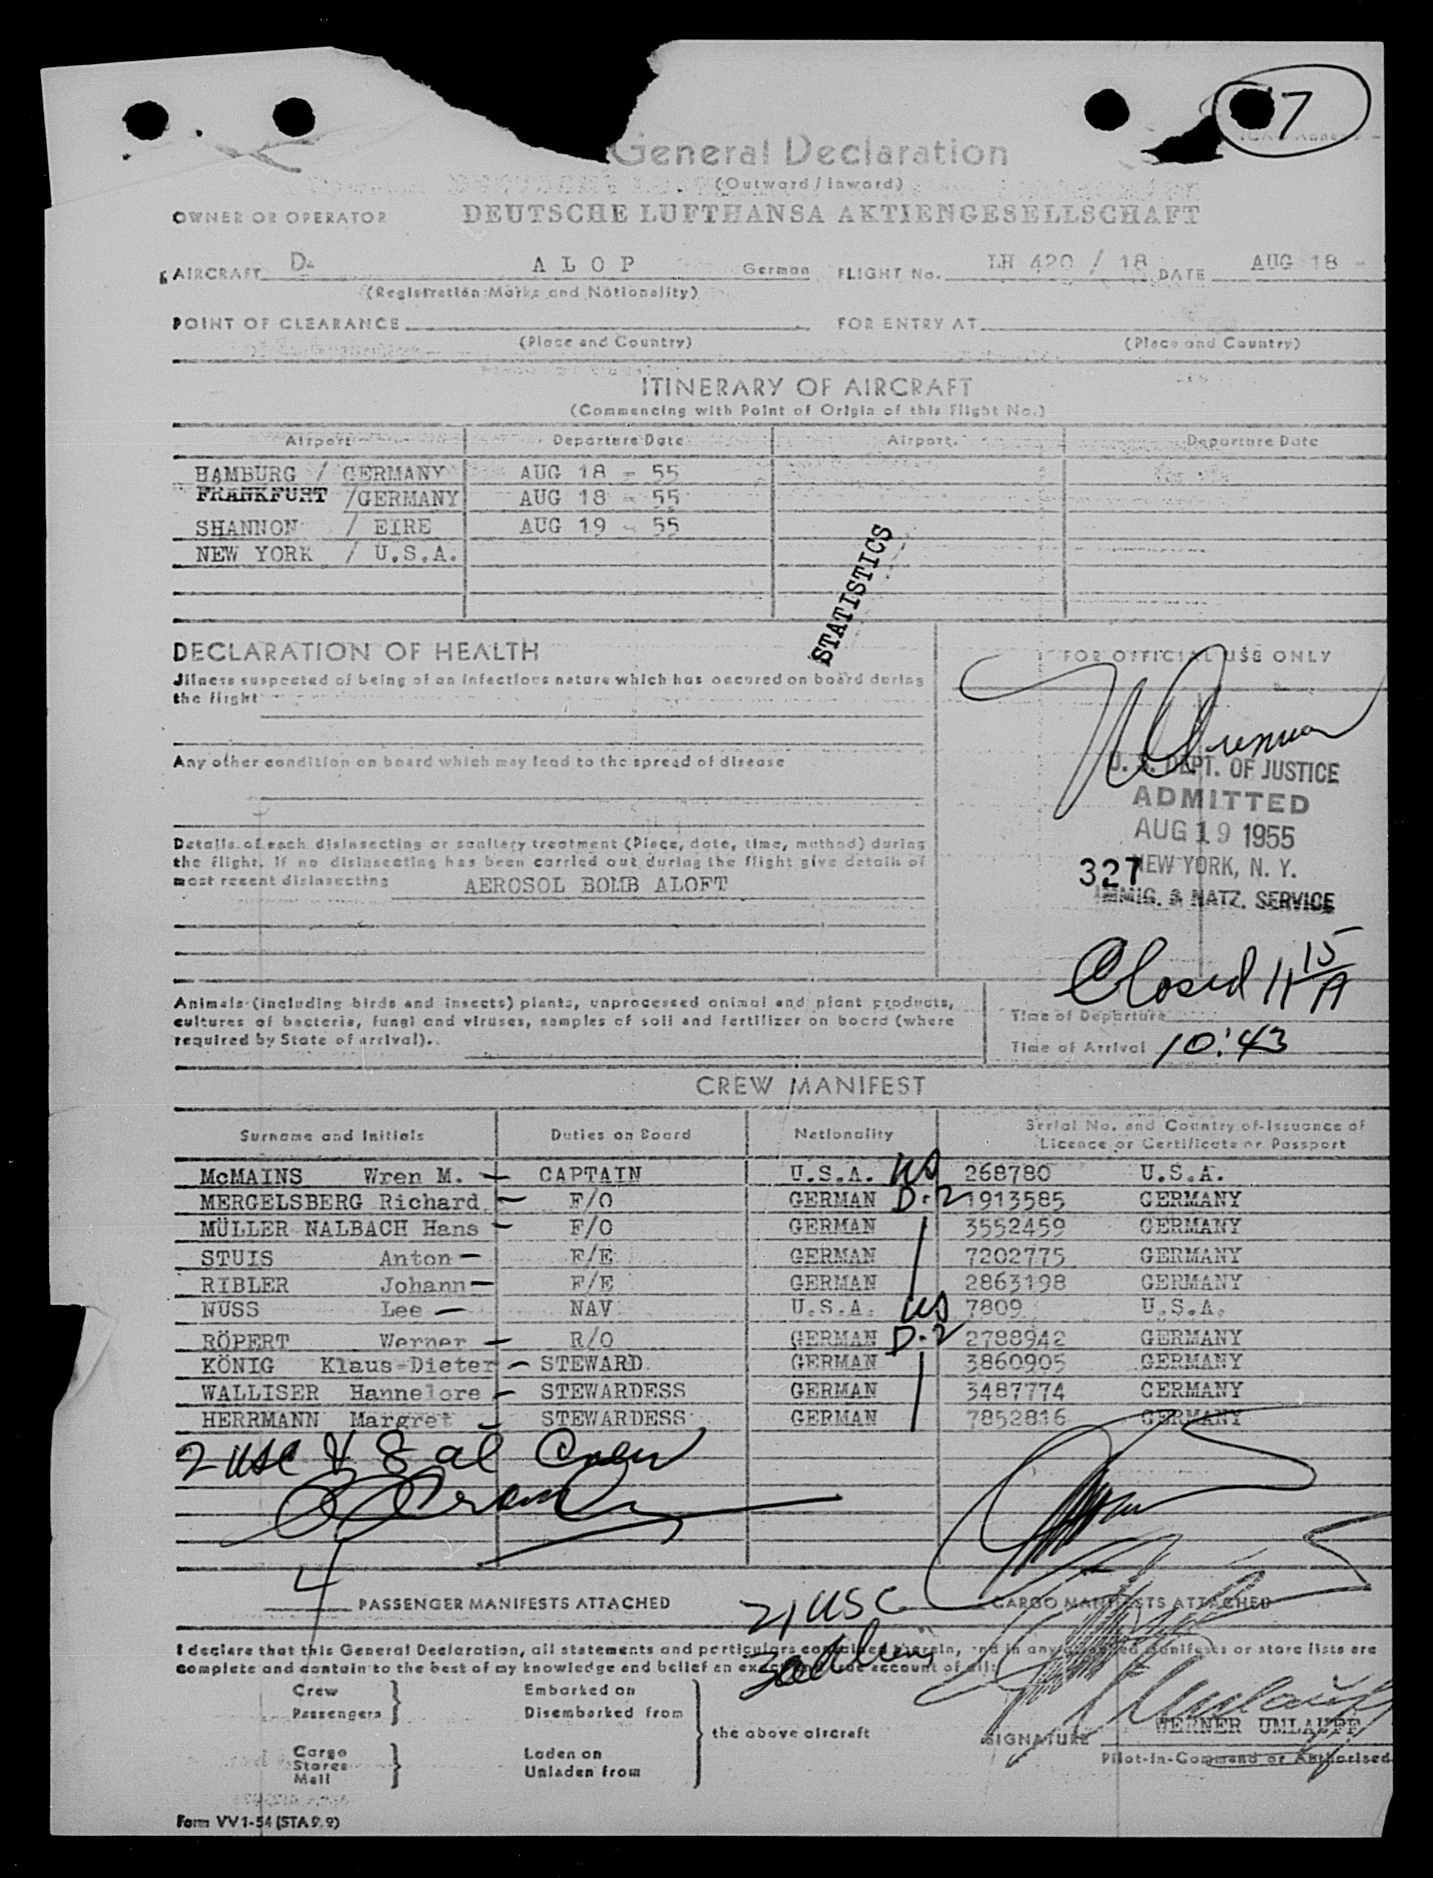 7
General Declaration
(Outward / Inward)
OWNER OR OPERATOR DEUTSCHE LUFTHANSA AKTIENGESELLSCHAFT
AIRCRAFT D- A L O P German FLIGHT No. LH 420 / 18 DATE AUG 18 -
(Registration Marks and Nationality)
POINT OF CLEARANCE FOR ENTRY AT
(Place and Country) (Place and Country)
ITINERARY OF AIRCRAFT
(Commencing with Point of Origin of this Flight No.)
Airport Departure Date Airport Departure Date
HAMBURG / GERMANY AUG 18 - 55
FRANKFURT / GERMANY AUG 18 - 55
SHANNON / EIRE AUG 19 - 55
NEW YORK / U.S.A.
STATISTICS
DECLARATION OF HEALTH
FOR OFFICIAL USE ONLY
Jllness suspected of being of an infectious nature which has occured on board during
the flight
Any other condition on board which may lead to the spread of disease
U. S. DEPT. OF JUSTICE
ADMITTED
AUG 19 1955
327 NEW YORK, N. Y.
IMMIG. & NATZ. SERVICE
Details of each disinsecting or sanitary treatment (Place, date, time, method) during
the flight. If no disinsecting has been carried out during the flight give details of
most recent disinsecting AEROSOL BOMB ALOFT
Closed 11 15/A
Animals (including birds and insects) plants, unprocessed animal and plant products,
cultures of bacteria, fungi and viruses, samples of soil and fertilizer on board (where
required by State of arrival).
Time of Departure
Time of Arrival 10:43
CREW MANIFEST
Surname and Initials Duties on Board Nationality Serial No. and Country of Issuance of
Licence or Certificate or Passport
McMAINS Wren M. - CAPTAIN U.S.A. US 268780 U.S.A.
MERGELSBERG Richard - F/O GERMAN D-2 1913585 GERMANY
MÜLLER NALBACH Hans - F/O GERMAN 3552459 GERMANY
STUIS Anton - F/E GERMAN 7202775 GERMANY
RIBLER Johann - F/E GERMAN 2863198 GERMANY
NUSS Lee - NAV U.S.A. US 7809 U.S.A.
RÖPERT Werner - R/O GERMAN D-2 2788942 GERMANY
KÖNIG Klaus-Dieter - STEWARD GERMAN 3860905 GERMANY
WALLISER Hannelore - STEWARDESS GERMAN 3487774 GERMANY
HERRMANN Margret - STEWARDESS GERMAN 7852816 GERMANY
2 USC & 8 al Crew
4 PASSENGER MANIFESTS ATTACHED 21 USC CARGO MANIFESTS ATTACHED
I declare that this General Declaration, all statements and particulars contained therein, and in any attached manifests or store lists are
complete and contain to the best of my knowledge and belief an exact and true account of all:
Crew
Passengers
Embarked on
Disembarked from
the above aircraft
Cargo
Stores
Mail
Laden on
Unladen from
SIGNATURE WERNER UMLAUFF
Pilot-in-Command or Authorised
Form VV 1-54 (STA 9.9)